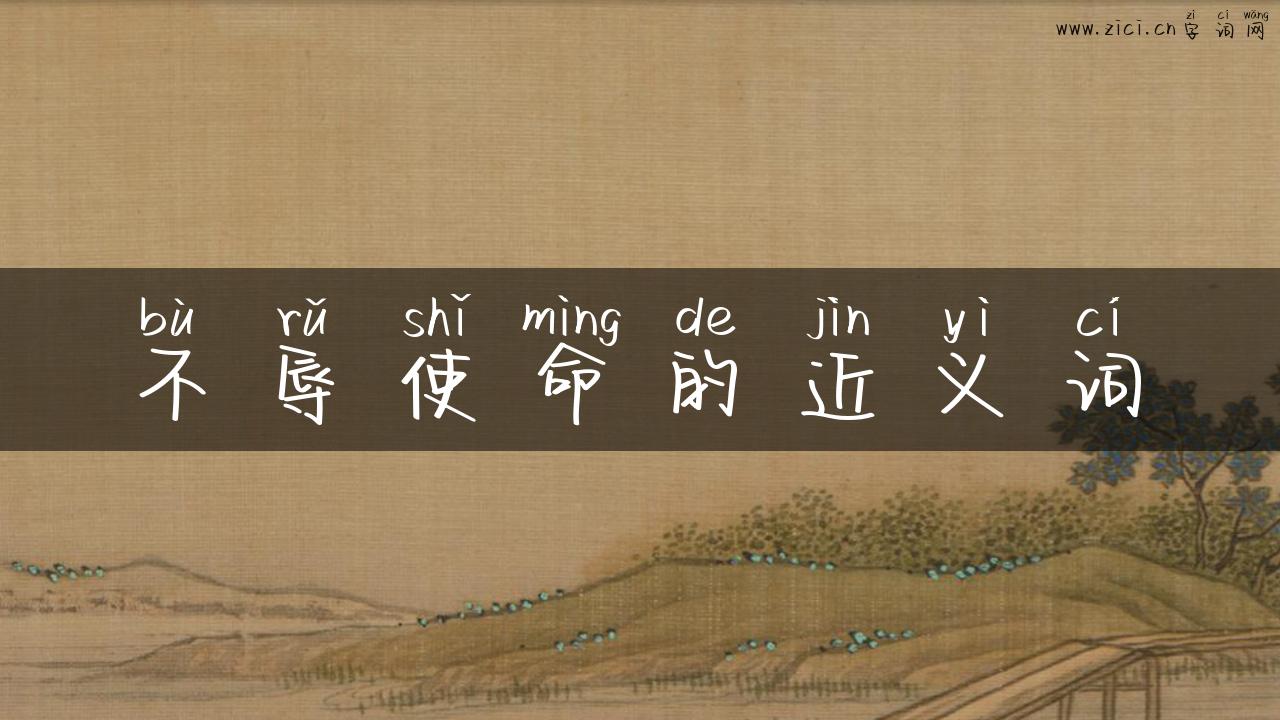 zì cí wǎng
www.zici.cn字词网
bù rǔ shǐ mìng de jìn yì cí
不辱使命的近义词